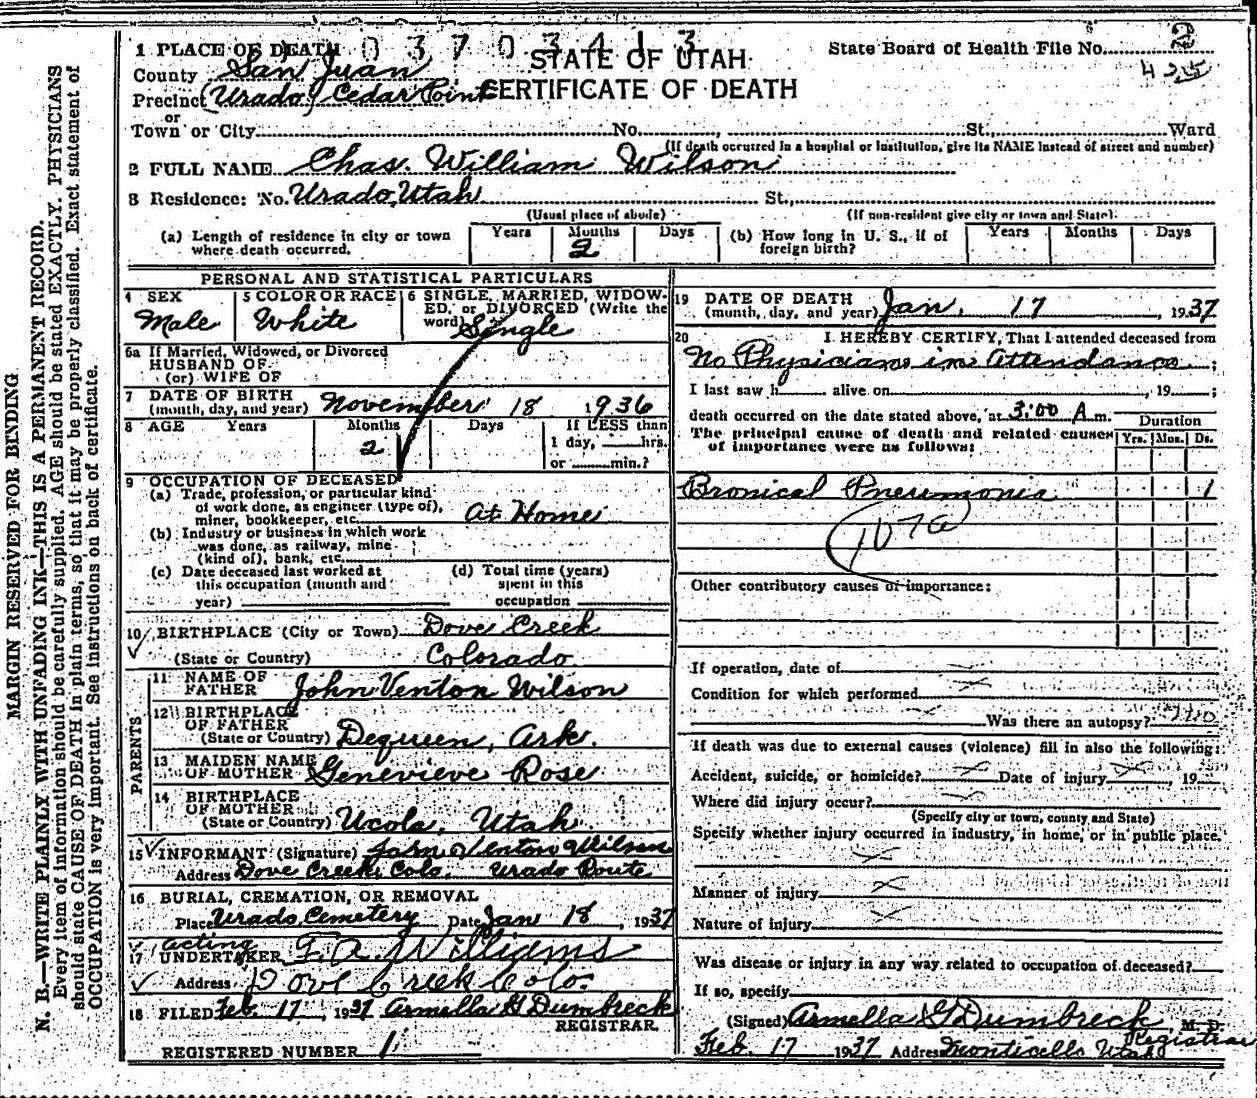 MARGIN RESERVED FOR BINDING
N. B.—WRITE PLAINLY WITH UNFADING INK—THIS IS A PERMANENT RECORD.
Every item of information should be carefully supplied. AGE should be stated EXACTLY. PHYSICIANS
should state CAUSE OF DEATH in plain terms, so that it may be properly classified. Exact statement of
OCCUPATION is very important. See instructions on back of certificate.
1 PLACE OF DEATH 0 3 7 0 3 4 1 3
STATE OF UTAH
CERTIFICATE OF DEATH
State Board of Health File No. 2
425
County San Juan
Precinct (Urado) Cedar Point
or
Town or City No. , St., Ward
(If death occurred in a hospital or institution, give its NAME instead of street and number)
2 FULL NAME Chas. William Wilson
3 Residence: No. Urado, Utah St.,
(Usual place of abode) (If non-resident give city or town and State)
(a) Length of residence in city or town where death occurred. Years Months 2 Days
(b) How long in U. S., if of foreign birth? Years Months Days
PERSONAL AND STATISTICAL PARTICULARS
4 SEX Male
5 COLOR OR RACE White
6 SINGLE, MARRIED, WIDOWED, or DIVORCED (Write the word) Single
6a If Married, Widowed, or Divorced
HUSBAND OF
(or) WIFE OF
7 DATE OF BIRTH (month, day, and year) November 18 1936
8 AGE Years Months 2 Days If LESS than
1 day, hrs.
or min.?
9 OCCUPATION OF DECEASED
(a) Trade, profession, or particular kind
of work done, as engineer (type of),
miner, bookkeeper, etc. At Home
(b) Industry or business in which work
was done, as railway, mine
(kind of), bank, etc.
(c) Date deceased last worked at this occupation (month and year)
(d) Total time (years) spent in this occupation
10 BIRTHPLACE (City or Town) Dove Creek
(State or Country) Colorado
PARENTS
11 NAME OF FATHER John Venton Wilson
12 BIRTHPLACE OF FATHER (State or Country) Dequeen, Ark.
13 MAIDEN NAME OF MOTHER Genevieve Rose
14 BIRTHPLACE OF MOTHER (State or Country) Ucolo, Utah
15 INFORMANT (Signature) John Venton Wilson
Address Dove Creek, Colo. Urado Route
16 BURIAL, CREMATION, OR REMOVAL
Place Urado Cemetery Date Jan 18, 1937
acting
17 UNDERTAKER F. A. Williams
Address Dove Creek Colo.
18 FILED Feb. 17, 1937 Armella G Dumbreck
REGISTRAR.
REGISTERED NUMBER 1
19 DATE OF DEATH (month, day, and year) Jan. 17, 1937
20 I HEREBY CERTIFY, That I attended deceased from
No Physicians in Attendance ;
I last saw h alive on , 19 ;
death occurred on the date stated above, at 3:00 A m.
The principal cause of death and related causes of importance were as follows:
Duration
Yrs. Mos. Ds.
Bronical Pneumonia 1
107a
Other contributory causes of importance:
If operation, date of
Condition for which performed
Was there an autopsy? no
If death was due to external causes (violence) fill in also the following:
Accident, suicide, or homicide? Date of injury , 19
Where did injury occur?
(Specify city or town, county and State)
Specify whether injury occurred in industry, in home, or in public place.
Manner of injury
Nature of injury
Was disease or injury in any way related to occupation of deceased?
If so, specify
(Signed) Armella G Dumbreck, M. D.
Registrar
Feb. 17 1937 Address Monticello Utah